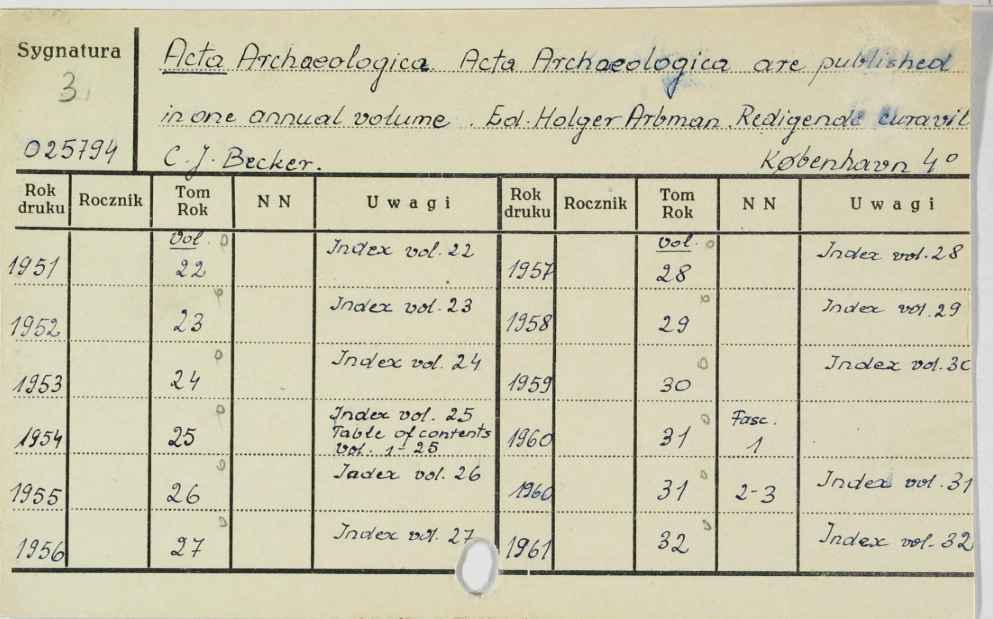 Sygnatura
3.
025794
Acta Archaeologica. Acta Archaeologica are published
in one annual volume. Ed. Holger Arbman. Redigende curavit
C. J. Becker. København 4°
Rok druku Rocznik Tom Rok N N Uwagi Rok druku Rocznik Tom Rok N N Uwagi
1951 Vol. 22 Index vol. 22 1957 Vol. 28 Index vol. 28
1952 23 Index vol. 23 1958 29 Index vol. 29
1953 24 Index vol. 24 1959 30 Index vol. 30
1954 25 Index vol. 25 Table of contents vol. 1-25 1960 31 Fasc. 1
1955 26 Index vol. 26 1960 31 2-3 Index vol. 31
1956 27 Index vol. 27 1961 32 Index vol. 32